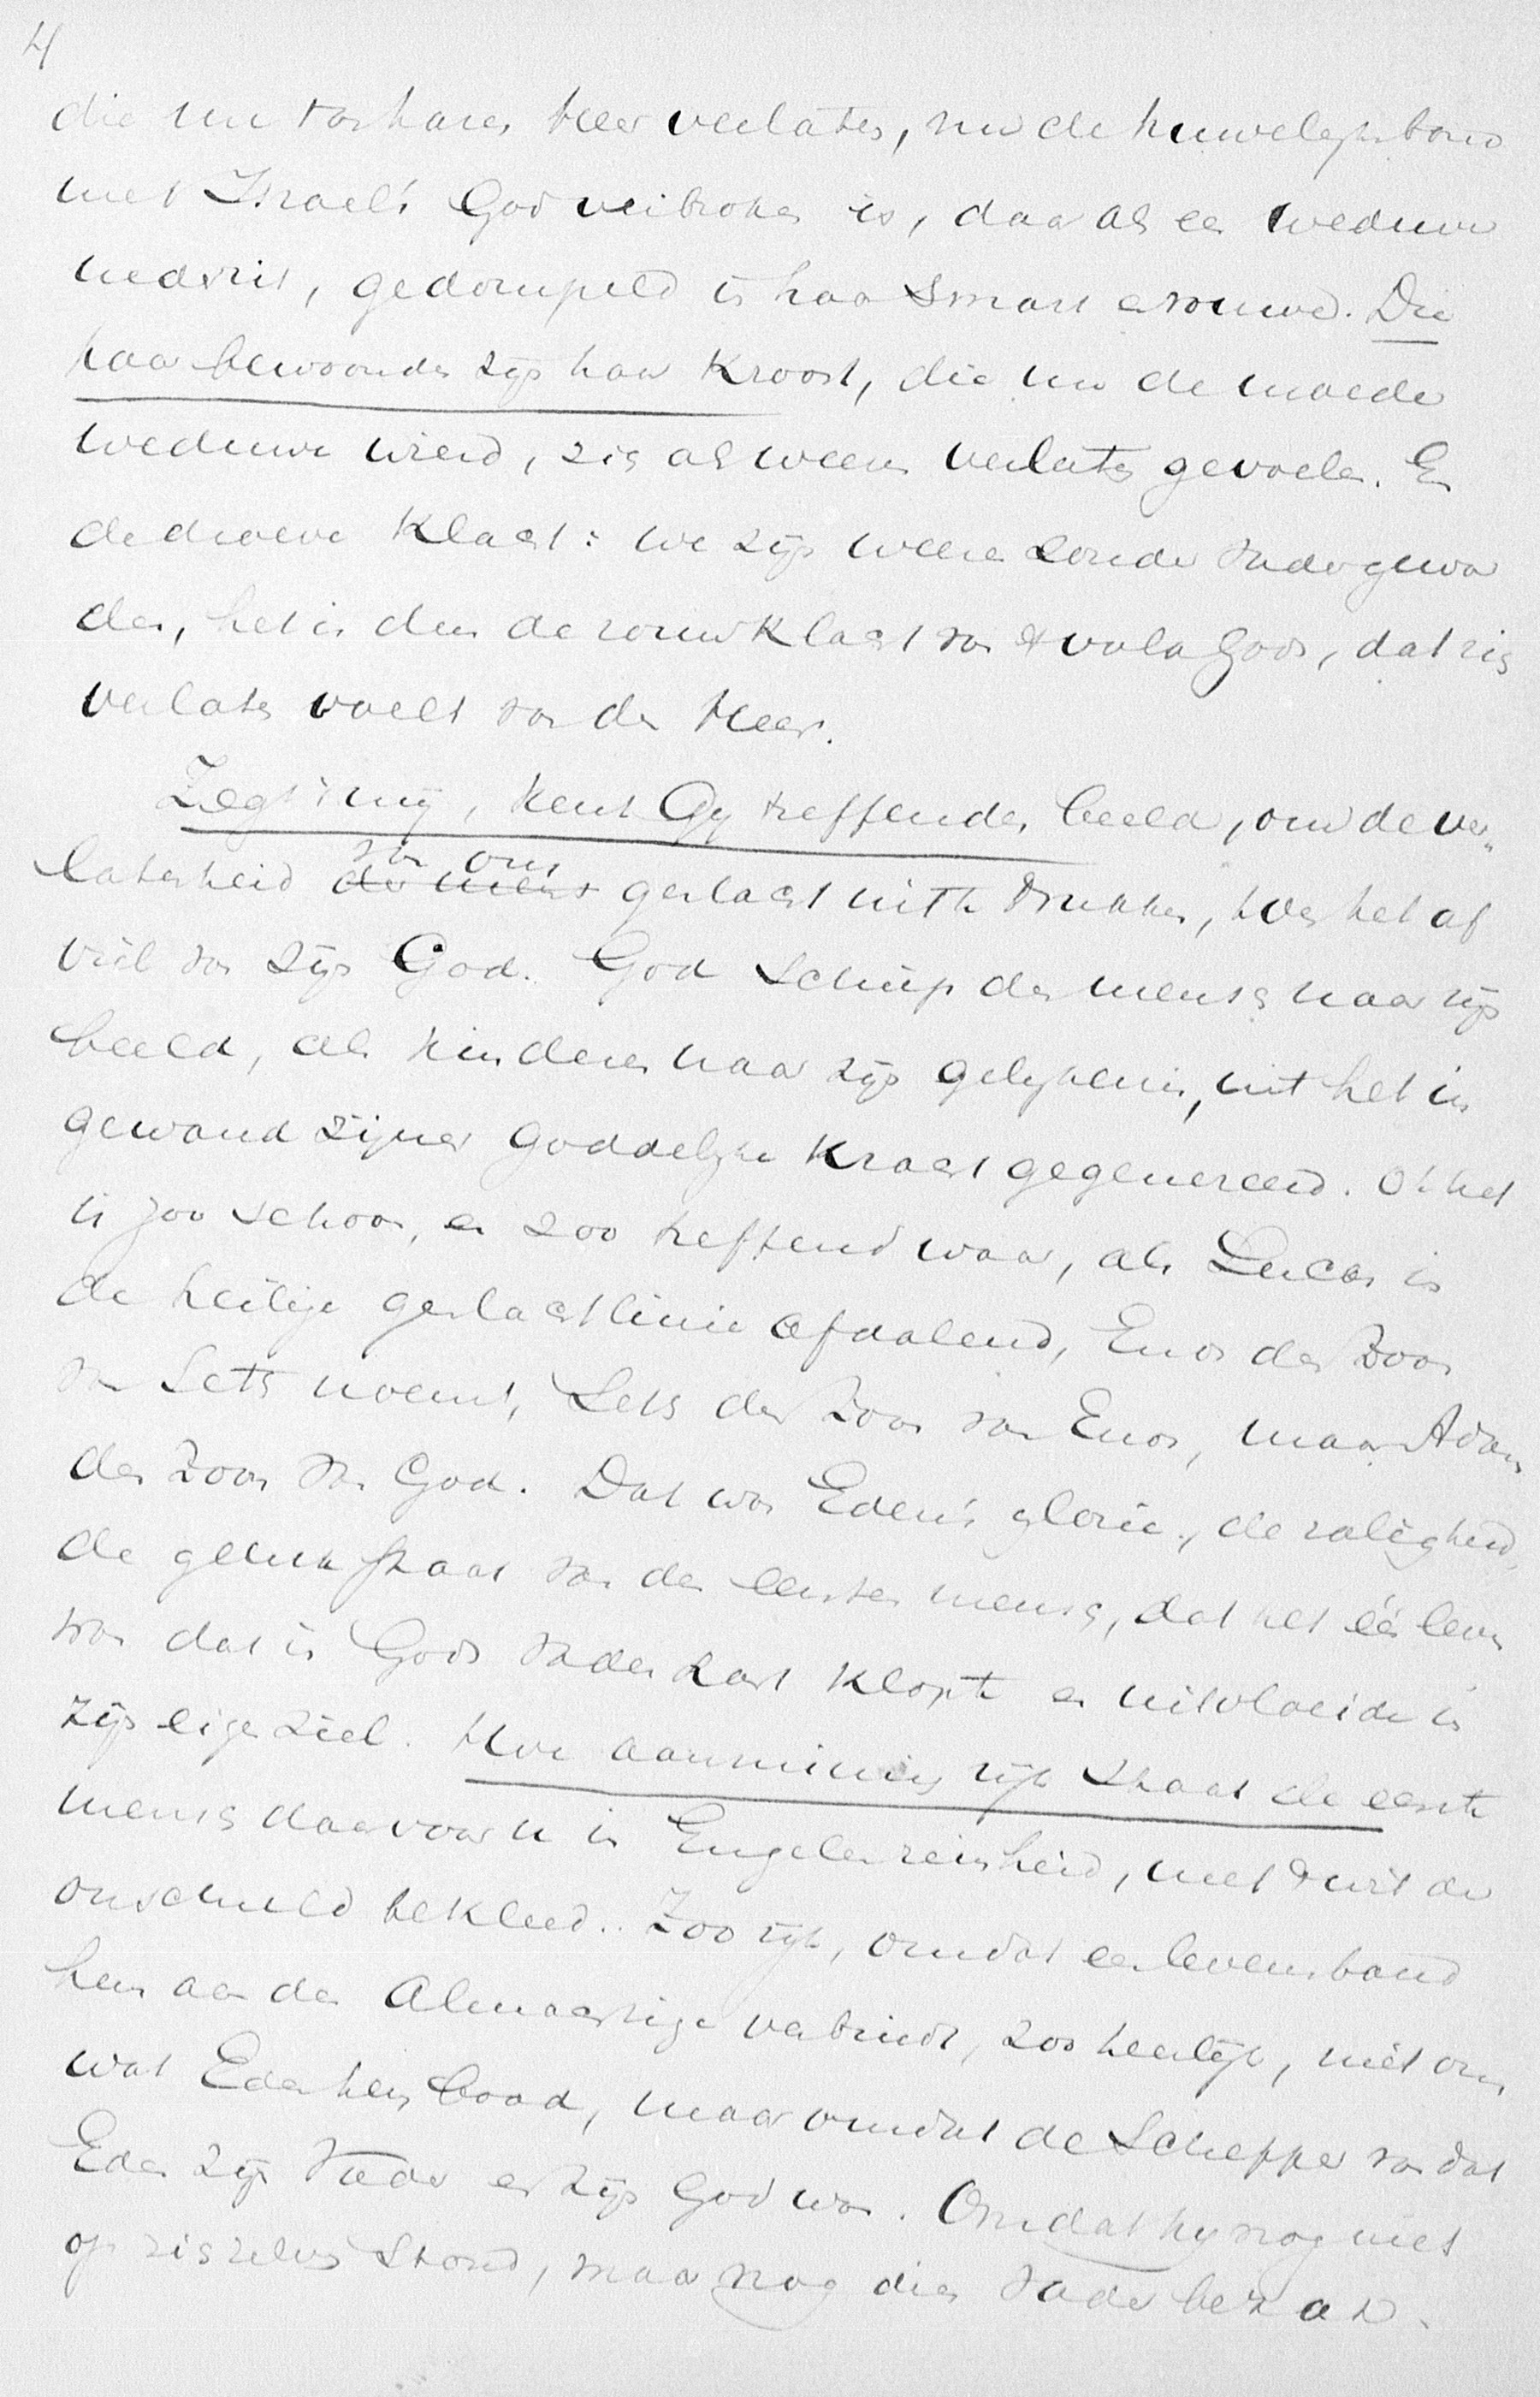 4
die nu van haren Heer verlaten, nu de huwelijksband
met Israel's God verbroken is, daar als een weduwe
nederzit, gedompeld in haar smart en rouwe. Die
haar bewoonden zijn haar Kroost, die nu de moeder
weduwe wierd, zich als weezen verlaten gevoelen. En
de droeve Klacht: we zijn weezen zonder Vader gewor
den, het is dus de rouwklacht van 't volk Gods, dat zich
verlaten voelt van den Heer.
Zegt mij, kent Gij treffender beeld, om de ver„
latenheid van ons geslacht uit te drukken, toen het af
viel van zijn God. God schiep den mensch naar zijn
beeld, als kinderen naar zijn gelijkenis, uit het in
gewand zijner Goddelijke Kracht gegenereerd. O! het
is zoo schoon, en zoo treffend waar, als Lucas in
de heilige geslachtlinie afdalend, Enos den Zoon
van Seth noemt, Seth den Zoon van Enos, maar Adam
den Zoon van God. Dat was Eden's glorie, de zaligheid,
de gelukstaat van den eersten mensch, dat het één leven
was dat in Gods Vaderhart Klopte en uitvloeide in
zijn eigen ziel. Hoe aanminnig rijk staat de eerste
mensch daar voor u in Engelenreinheid, met 't wit der
onschuld bekleed.. Zoo rijk, omdat een levensband
hem aan den Almachtige verbindt, zoo heerlijk, niet om
wat Eden hem bood, maar omdat de Schepper van dat
Eden zijn Vader en zijn God was. Omdat hij nog niet
op zichzelven stond, maar nog dien Vader bezat.